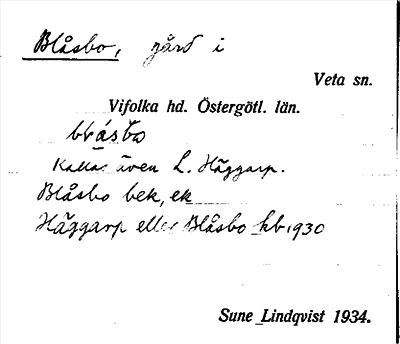 Blåsbo, gård i
Veta sn.
Vifolka hd. Östergötl. län.
blåsbo
Kallas även L. Häggarp.
Blåsbo bek, ek
Häggarp eller Blåsbo kb 1930
Sune Lindqvist 1934.